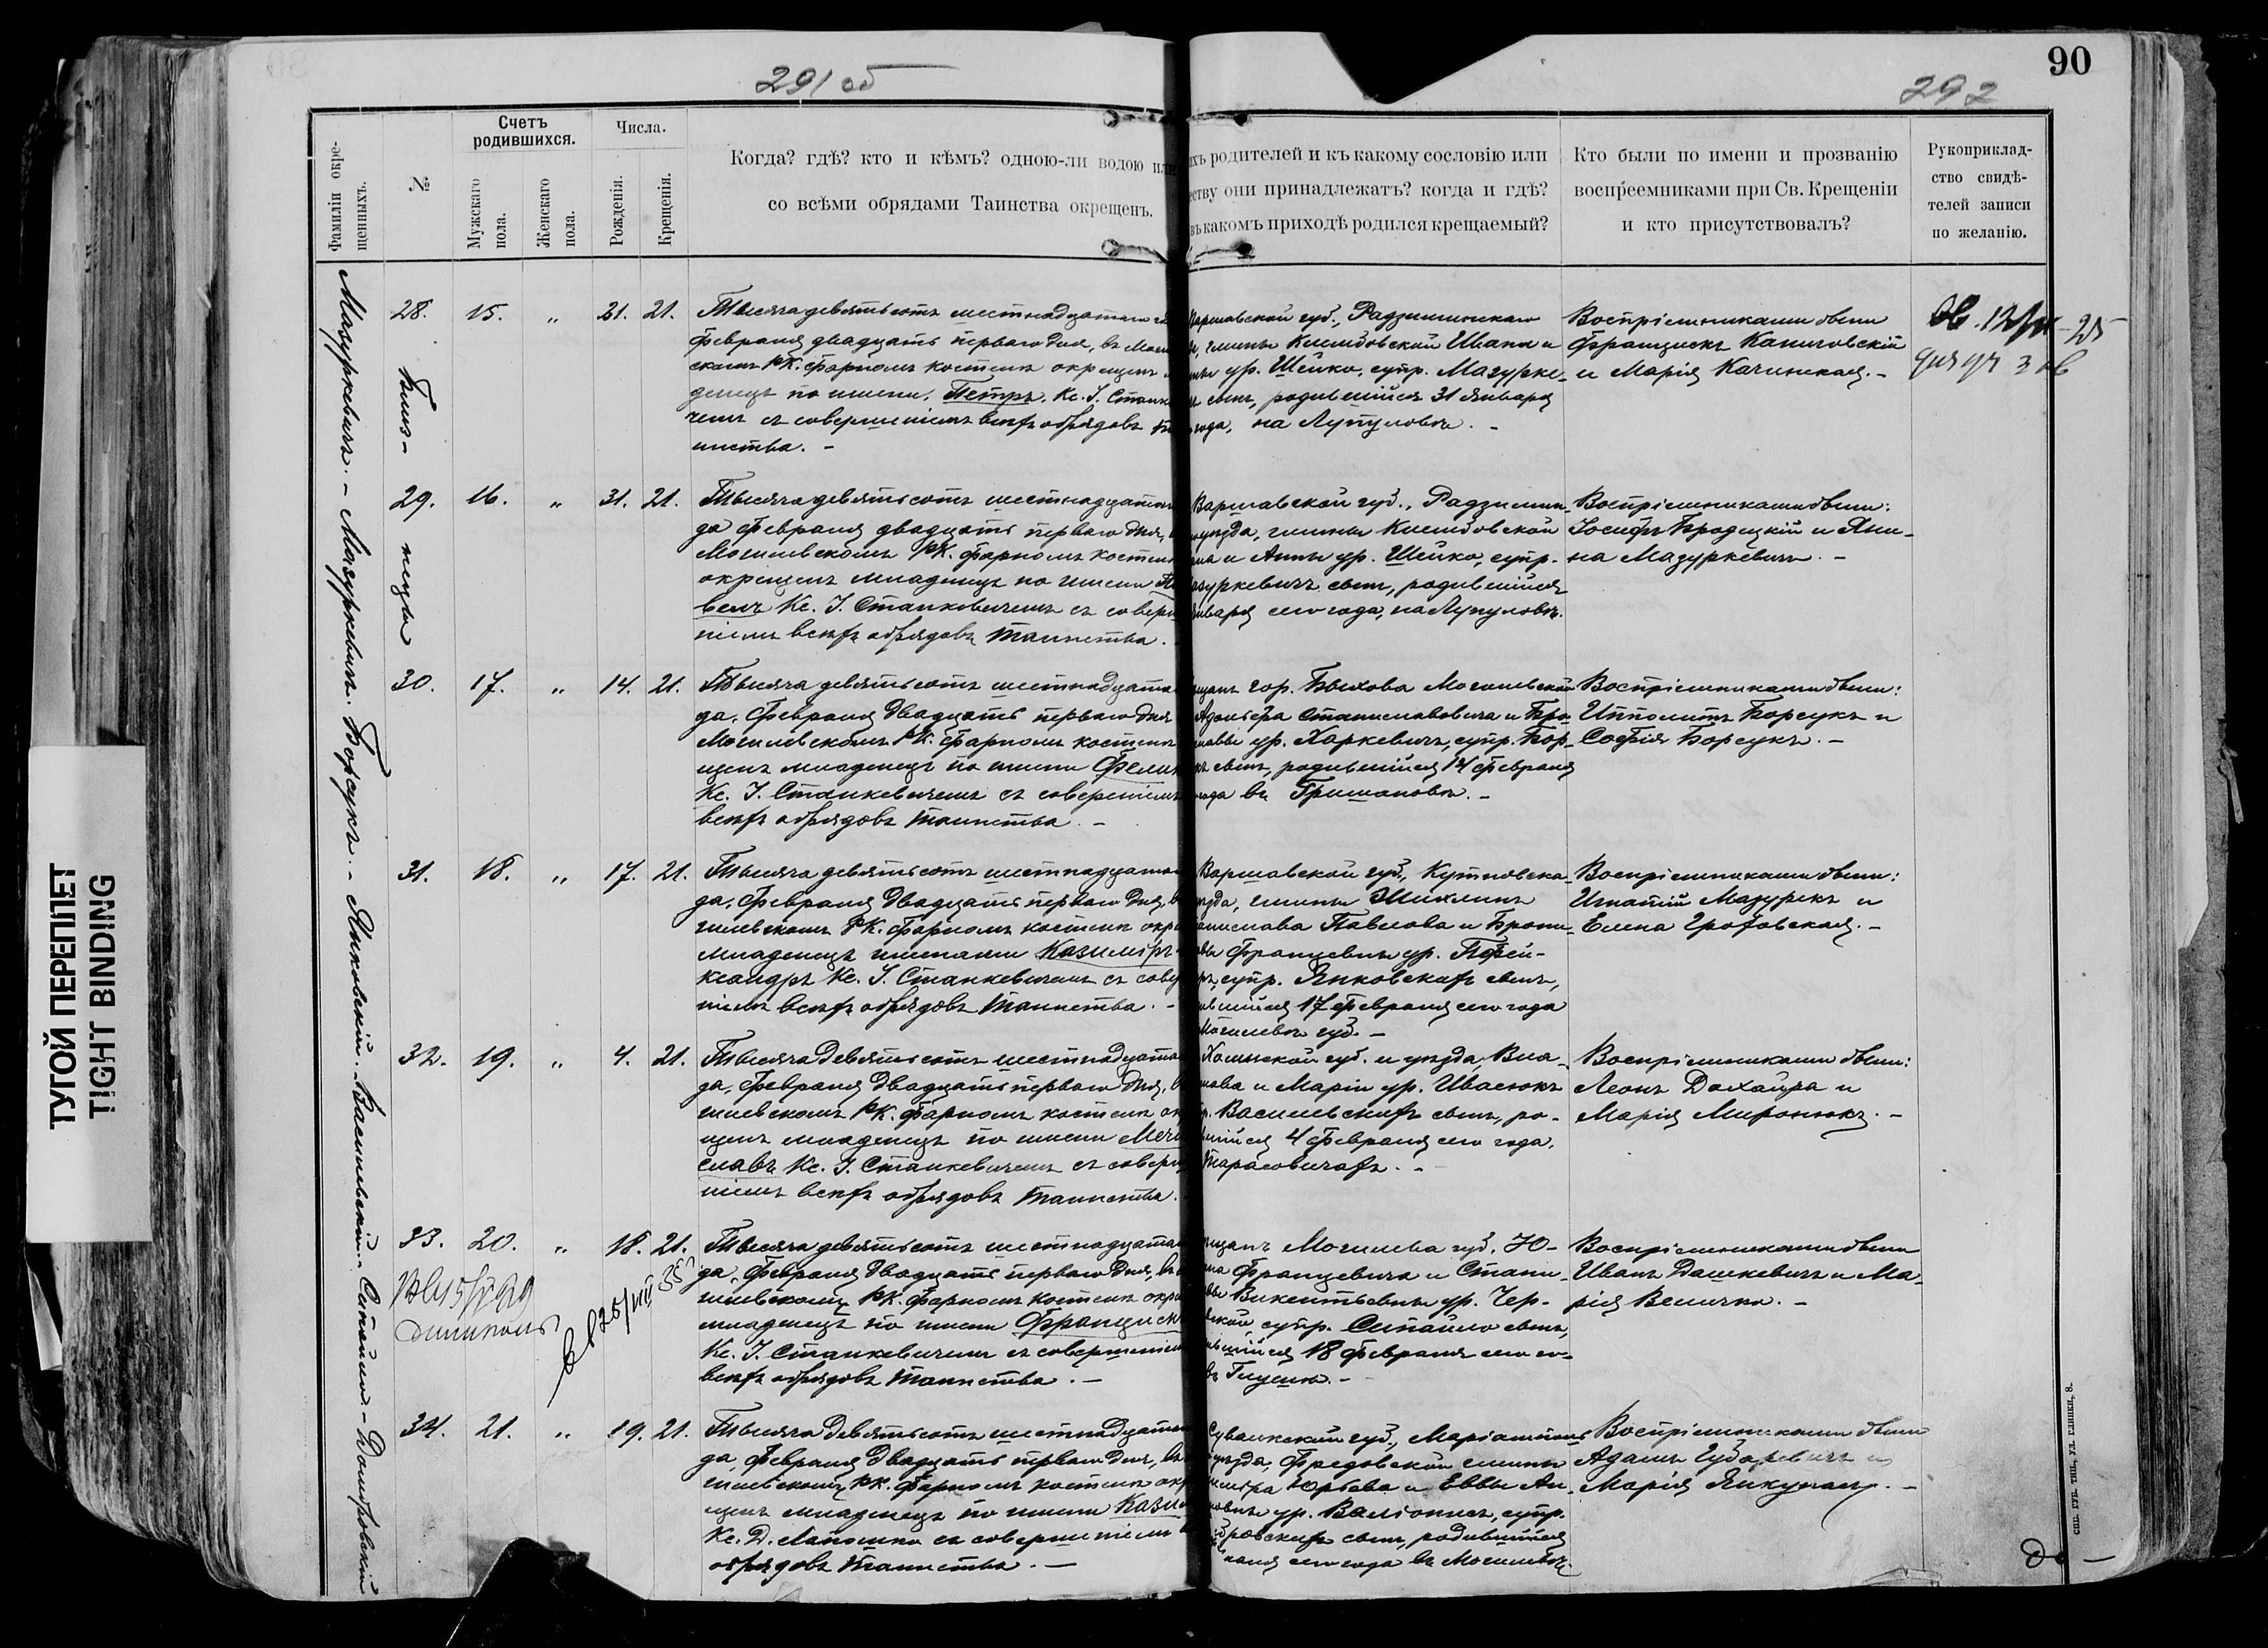 90
291 об
292
ТУГОЙ ПЕРЕПЛЕТ
TIGHT BINDING
Фамиліи окре-
щенныхъ.
№
Счетъ
родившихся.
Мужскаго
пола.
Женскаго
пола.
Числа.
Рожденія.
Крещенія.
Когда? гдѣ? кто и кѣмъ? одною-ли водою или
со всѣми обрядами Таинства окрещенъ.
ихъ родителей и къ какому сословію или
еству они принадлежатъ? когда и гдѣ?
въ какомъ приходѣ родился крещаемый?
Кто были по имени и прозванію
воспреемниками при Св. Крещеніи
и кто присутствовалъ?
Рукоприклад-
ство свидѣ-
телей записи
по желанію.
Мазуркевичъ. – Мазуркевичъ. Борсукъ. – Янковскій. Василевскій. – Сипайло. – Домбровскій
Близ-
нецы
28. 15. „ 31. 21.
Тысяча девятьсотъ шестнадцатаго го
февраля двадцать перваго дня, въ Моги
скомъ РК. фарномъ костелѣ окрещенъ
денецъ по имени Петръ. Кс. І. Станке
чемъ съ совершеніемъ всѣхъ обрядовъ та
инства. –
Варшавской губ., Радзиминскаго
гмины Клембовской Ивана и
ур. Шейко, супр. Мазурке-
сынъ, родившійся 31 Января
года, на Лупуловѣ. –
Воспріемниками были
Францискъ Каниговскій
и Марія Качинская. –
29. 16. „ 31. 21.
Тысяча девятьсотъ шестнадцатаго
да февраля двадцать перваго дня,
Могилевскомъ РК. фарномъ костелѣ
окрещенъ младенецъ по имени Па
велъ Кс. І. Станкевичемъ съ соверш
ніемъ всѣхъ обрядовъ таинства.
Варшавской губ., Радзимин-
уѣзда, гмины Клембовской
на и Анны ур. Шейко, супр.
азуркевичъ сынъ, родившійся
Января сего года, на Лупуловѣ.
Воспріемниками были:
Іосифъ Бродецкій и Яни-
на Мазуркевичъ. –
30. 17. „ 14. 21.
Тысяча девятьсотъ шестнадцата
да, февраля двадцать перваго дня
Могилевскомъ РК. фарномъ костелѣ
щенъ младенецъ по имени Фелик
Кс. І. Станкевичемъ съ совершеніемъ
всѣхъ обрядовъ таинства. –
щанъ гор. Быхова Могилевской
Адольфа Станиславовича и Бро-
славы ур. Харкевичъ, супр. Бор-
къ сынъ, родившійся 14 февраля
года въ Гришановѣ. –
Воспріемниками были:
Ипполитъ Борсукъ и
Софія Борсукъ. –
31. 18. „ 17. 21.
Тысяча девятьсотъ шестнадцата
да, февраля двадцать перваго дня, въ
гилевскомъ РК. фарномъ костелѣ окре
младенецъ именами Казиміръ-
ксандръ Кс. І. Станкевичемъ съ совер
ніемъ всѣхъ обрядовъ таинства. –
Варшавской губ., Кутновска-
уѣзда, гмины
анислава Павлова и Брони-
вы Францевны ур.
супр. Янковскихъ сынъ,
ившійся 17 февраля сего года
Могилевѣ губ. –
Воспріемниками были:
Игнатій Мазурекъ и
Елена Гроховская. –
32. 19. „ 4. 21.
Тысяча девятьсотъ шестнадцата
да, февраля двадцать перваго дня, въ
гилевскомъ РК. фарномъ костелѣ ок
щенъ младенецъ по имени Мечи
славъ Кс. І. Станкевичемъ съ соверш
ніемъ всѣхъ обрядовъ таинства.
Холмской губ. и уѣзда, Вла-
лава и Маріи ур. Ивасюкъ
Василевскихъ сынъ, ро-
вшійся 4 февраля сего года,
Тарасовичахъ. –
Воспріемниками были:
Леонъ Дохайра и
Марія Миронюкъ. –
33. 20. „ 18. 21.
Тысяча девятьсотъ шестнадцата
да, февраля двадцать перваго дня, въ
гилевскомъ РК. фарномъ костелѣ окре
младенецъ по имени Францискъ
Кс. І. Станкевичемъ съ совершеніем
всѣхъ обрядовъ таинства. –
щанъ Могилева губ. Ю-
на Францевича и Стани-
вы Викентьевны ур. Чер-
вской супр. Сипайло сынъ,
ившійся 18 февраля сего го-
въ
Воспріемниками были
Иванъ Дашкевичъ и Ма-
рія Величко. –
34. 21. „ 19. 21.
Тысяча девятьсотъ шестнадцата
да, февраля двадцать перваго дня, въ
гилевскомъ РК. фарномъ костелѣ окр
щенъ младенецъ по имени Кази
Кс. Д. съ совершеніемъ
обрядовъ таинства. –
Сувалкской губ., Маріампол
уѣзда, Фредовской гмины
Юрьева и Еввы Ан-
ур. Валіонисъ, супр.
бровскихъ сынъ, родившійся
раля сего года въ Могилевѣ.
Воспріемниками были
Адамъ и
Марія
СПБ. ГУБ. ТИП., УЛ. ГЛИНКИ, 8.